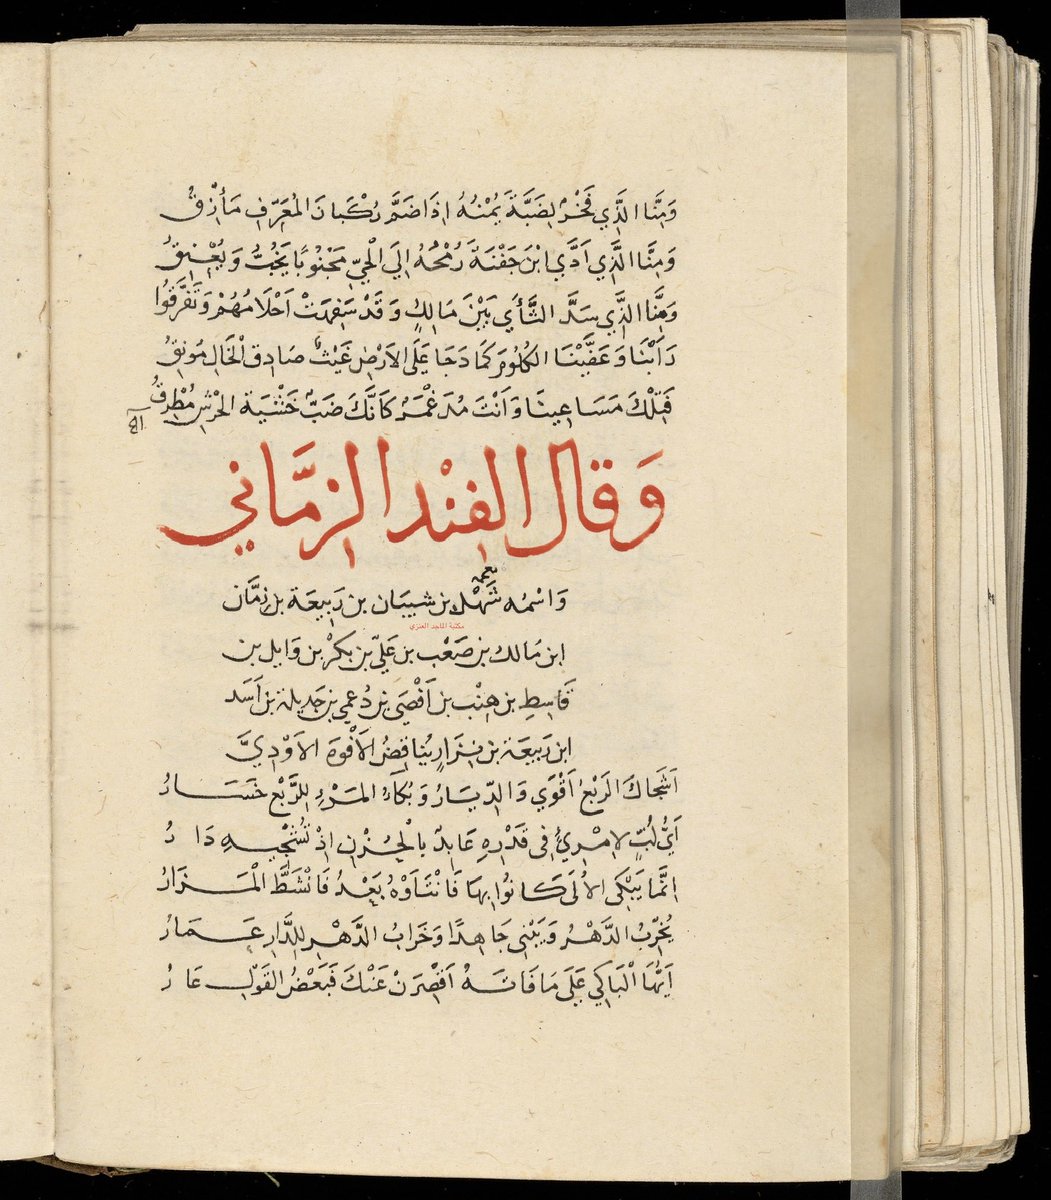 وَمِنَّا الَّذِي فَخْرٌ لِضَبَّةَ يُمْنُهُ اِذَا ضَمَّ رُكْبَانَ المُعَرَّفِ مَأزِقُ
وَمِنَّا الَّذِي اَدَّي ابْنَ جَفْنَةَ رُمْحُهُ اِلَي الْحَيِّ مَجْنُوبًا يَخُبُّ وَيُعْنِقُ
وَمِنَّا الَّذِي سَدَّ الثَّأَي بَيْنَ مَالِكٍ وَقَدْ سَفِهَتْ اَحْلَامُهُمْ وَتَفَرَّقُوا
رَاَبْنَا وَعَفَّيْنَا الكُلُومَ كَمَا دَجَا عَلَى الاَرْضِ غَيْثٌ صَادِقُ الْخَالِ مُونِقُ
فَتِلْكَ مَسَاعِينَا وَاَنْتَ مُدَغْمَرٌ كَاَنَّكَ ضَبٌّ خَشْيَةَ الحَرْشِ مُطْرِقُ
وَقال الفِنْد الزِمَّاني
وَاسْمُه شَهْل بن شيبَان بن رَبِيعَة بن زِمَّان
مكتبة الماجد العنزي
ابن مَالك بن صَعْب بن عَليّ بن بَكرْ بن وَايل بن
قَاسِطِ بن هِنْب بن اَفْصَى بن دُعمي بن جَديلة بن اَسَد
ابن رَبيعَة بن نِزَارٍ يُنَاقِضُ الاَفْوَهَ الاَوْدِيَّ
اَشجَاكَ الرَبْعُ اَقْوَي وَالدِّيَارُ وَبُكَاءُ المَرْءِ لِلرَّبْعِ خَسَارُ
اَيُّ لُبٍّ لامْرِيءٍ فى قَدْرِهِ عَابِدٌ بالْحُزْنِ اِذْ تُشْجِيهِ دَارُ
اِنَّمَا يَبْكى الاُلَى كَانُوا بِهَا فَانْتَاَوْهُ بَعْدُ فَانْشَطَّ الْمَزَارُ
يُخَرِّبُ الدَّهْرُ وَيَبْنى جَاهِدًا وَخَرَابُ الدَّهْرِ لِلدَّارِ عَمَارُ
اَيُّهَا الْبَاكِي عَلَى مَا فَاتَهُ اَقْصِرَنْ عَنْكَ فَبَعْضُ القَوْلِ عَارُ